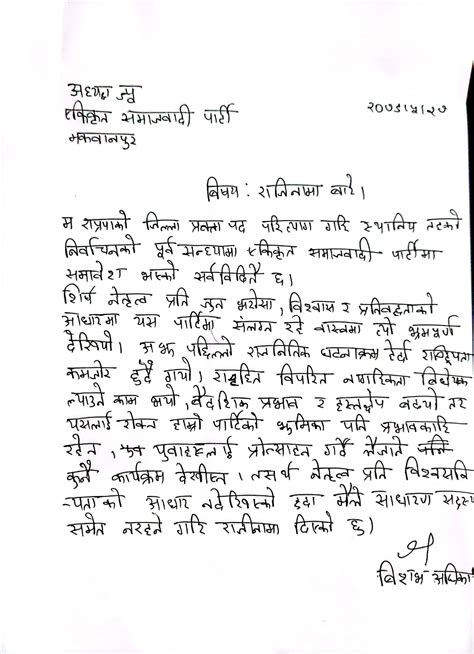 अध्यक्ष ज्यू
एकिकृत समाजवादी पार्टी
मकवानपुर
२०७९।५।२७
विषय : राजिनामा बारे।
म राप्रपाको जिल्ला प्रवक्ता पद परित्याग गरि स्थानिय तहको
निर्वाचनको पूर्व सन्ध्यामा एकिकृत समाजवादी पार्टीमा
समावेश भएको सर्वविदितै छ।
शिर्ष नेतृत्व प्रति जुन भरोसा, विश्वास र प्रतिवद्धताको
आधारमा यस पार्टिमा संलग्न रहे वास्तवमा त्यो भ्रमपूर्ण
देखियो। अझ पछिल्लो राजनितिक घटनाक्रम हेर्दा राष्ट्रियता
कमजोर हुदै गयो। राष्ट्रहित विपरित नागरिकता विधेयक
ल्याउने काम भयो, वैदेशिक प्रभाव र हस्तक्षेप बढ्यो तर
यसलाई रोक्न हाम्रो पार्टिको भूमिका पनि प्रभावकारि
रहेन, युवाहरुलाई प्रोत्साहन गर्दै लैजाने
कुनै कार्यक्रम देखीएन। तसर्थ नेतृत्व प्रति विश्वसनि
-यताको आधार नदेखिएको हुदा मैले साधारण सदस्य
समेत नरहने गरि राजीनामा दिएको छु।